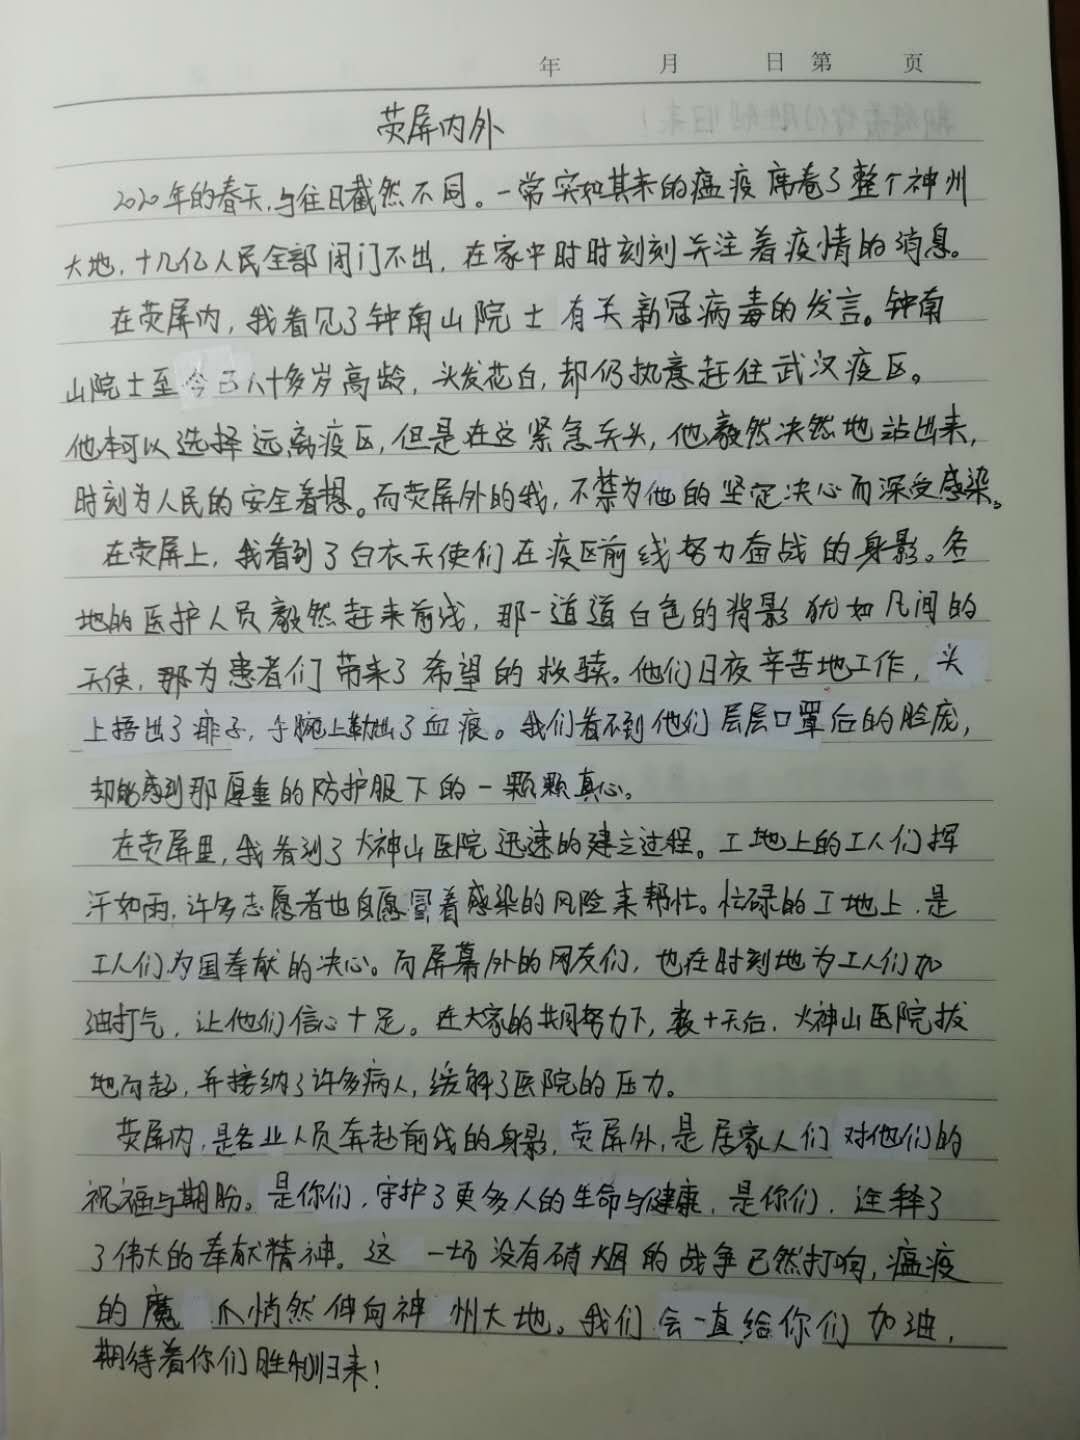 年 月 日 第 页
荧屏内外
2020年的春天,与往日截然不同。一常突如其来的瘟疫席卷了整个神州
大地,十几亿人民全部闭门不出,在家中时时刻刻关注着疫情的消息。
在荧屏内,我看见了钟南山院士有关新冠病毒的发言。钟南
山院士至今已八十多岁高龄,头发花白,却仍执意赶往武汉疫区。
他本可以选择远离疫区,但是在这紧急关头,他毅然决然地站出来,
时刻为人民的安全着想。而荧屏外的我,不禁为他的坚定决心而深受感染。
在荧屏上,我看到了白衣天使们在疫区前线努力奋战的身影。各
地的医护人员毅然赶来前线,那一道道白色的背影犹如凡间的
天使,那为患者们带来了希望的救赎。他们日夜辛苦地工作,头
上捂出了痱子,手腕上勒出了血痕。我们看不到他们层层口罩后的脸庞,
却能感到那厚重的防护服下的一颗颗真心。
在荧屏里,我看到了火神山医院迅速的建立过程。工地上的工人们挥
汗如雨,许多志愿者也自愿冒着感染的风险来帮忙。忙碌的工地上,是
工人们为国奉献的决心。而屏幕外的网友们,也在时刻地为工人们加
油打气,让他们信心十足。在大家的共同努力下,数十天后,火神山医院拔
地而起,并接纳了许多病人,缓解了医院的压力。
荧屏内,是各业人员奔赴前线的身影,荧屏外,是居家人们对他们的
祝福与期盼。是你们,守护了更多人的生命与健康,是你们,诠释了
了伟大的奉献精神。这一场没有硝烟的战争已然打响,瘟疫
的魔爪悄然伸向神州大地。我们会一直给你们加油,
期待着你们胜利归来!